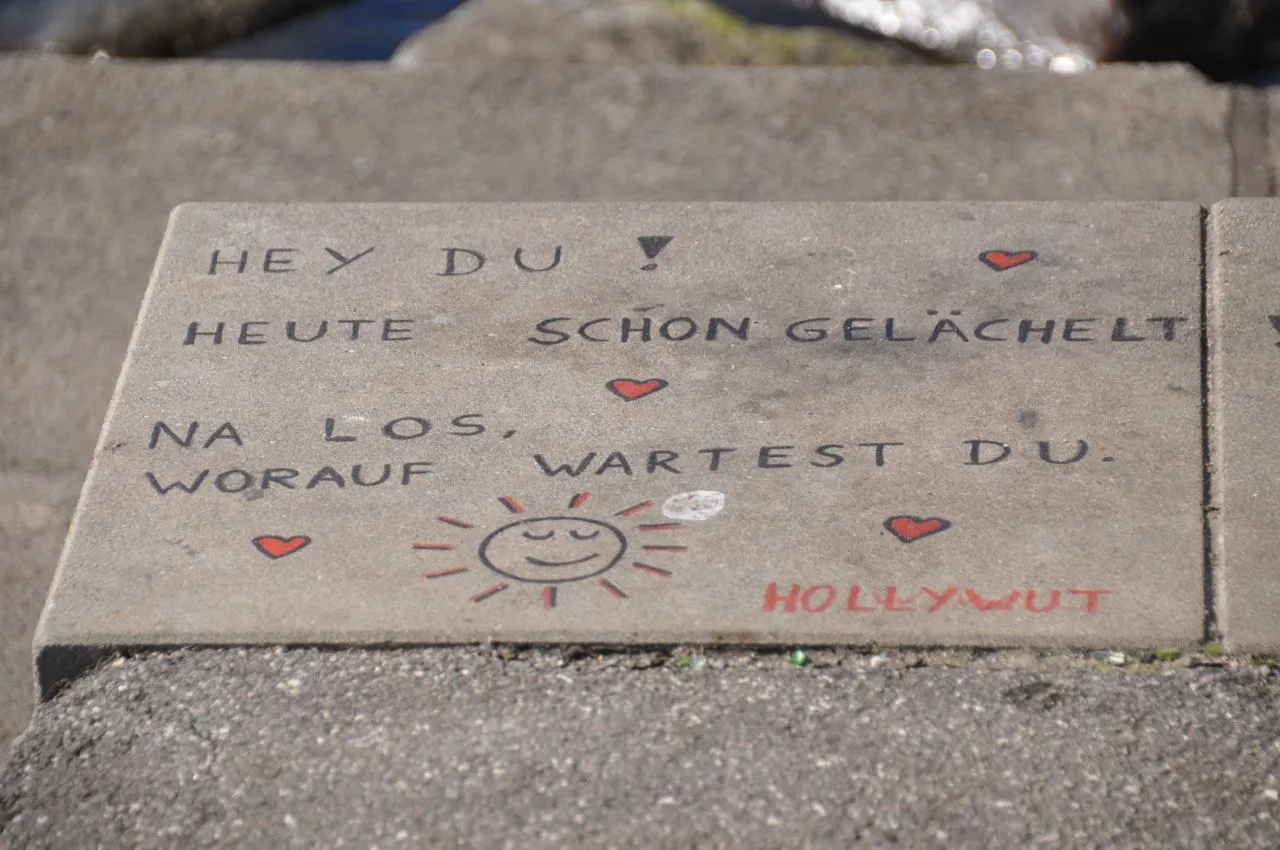 HEY DU!
HEUTE SCHON GELÄCHELT
NA LOS,
WORAUF WARTEST DU.
HOLLYWUT